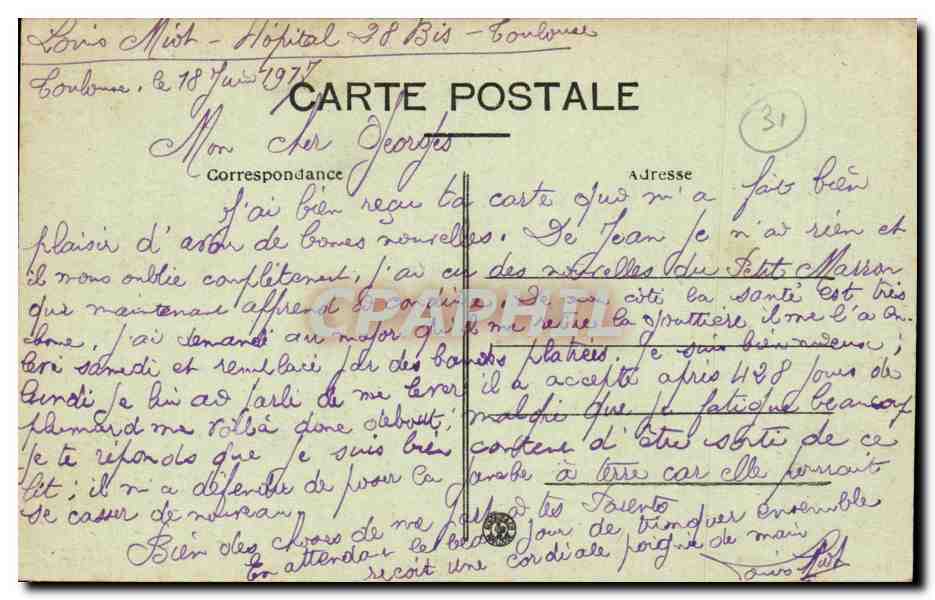 Louis Miot - Hôpital 28 Bis - Toulouse
Toulouse, le 18 Juin 1917
CARTE POSTALE
31
Mon cher Georges
Correspondance
Adresse
J'ai bien reçu ta carte qui m'a fait bien
plaisir d'avoir de bonnes nouvelles. De Jean je n'ai rien et
il nous oublie complètement, j'ai eu des nouvelles du Petit Masson
que maintenant apprend à conduire. De mon côté la santé est très
bonne, j'ai demandé au major qu'il me retire la gouttière, il me l'a en-
levé samedi et remplacé par des bandes platrées. Je suis bien mieux;
Lundi je lui ai parlé de me lever il a accepté après 428 jours de
plumard me voilà donc debout; malgré que je fatigue beaucoup
je te réponds que je suis bien content d'être sorti de ce
lit; il m'a défendu de poser la jambe à terre car elle pourrait
se casser de nouveau.
Bien des choses de ma part à tes Parents
En attendant le beau jour de trinquer ensemble
reçoit une cordiale poigné de main
Louis Miot
CPAPHIL